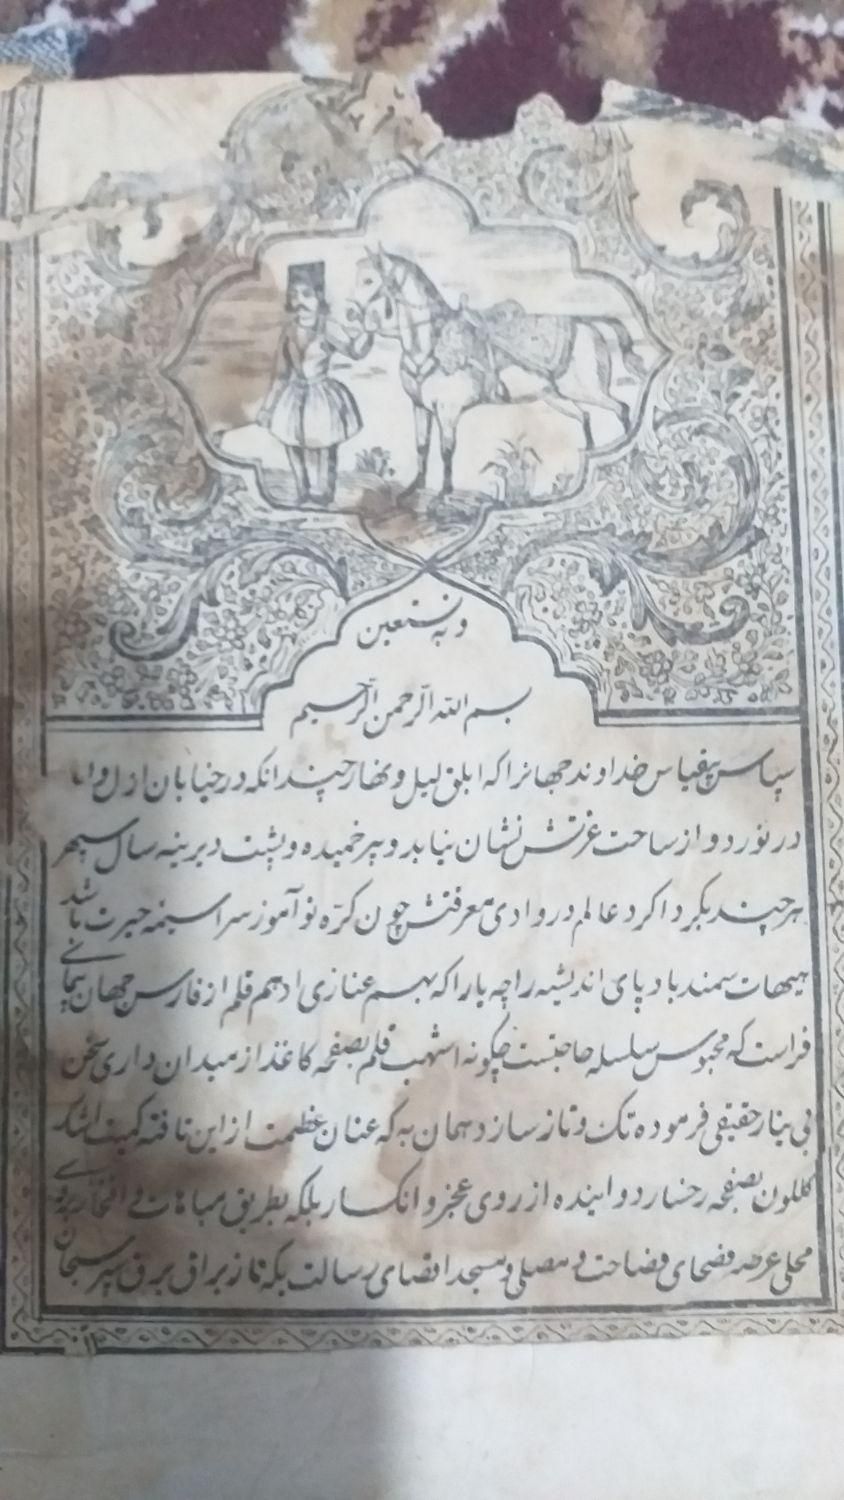 و به نستعین
بسم الله الرحمن الرحیم
سپاس بیقیاس خداوند جهانرا که ابلق لیل و نهار چندانکه در خیابان ازل و ا
در نورد و از ساحت عزتش نشان نیابد و پیر خمیده و پشت دیرینه سال سپهر
هر چند بگرد اکرد عالم در وادی معرفتش چون کرّه نو آموز سراسیمه حیرت باشد
هیهات سمند باد پای اندیشه را چه یارا که بهم عنازی ادهم قلم از فارس جهان پیمای
فراست که محبوس سلسله حاجتست چگونه اشهب قلم بصفحه کاغذ از میدان داری سخن
بی نیاز حقیقی فرموده تک و تاز سازد همان به که عنان عظمت از این تافته کمیت اشک
گلگون بصفحه رخسار دوانیده از روی عجز و انکسار بلکه بطریق مباهات و افتخار بروی
محلی عرصه فصحای فصاحت و مصلی مسجد اقصای رسالت یکه تاز براق برق سیر سبحان